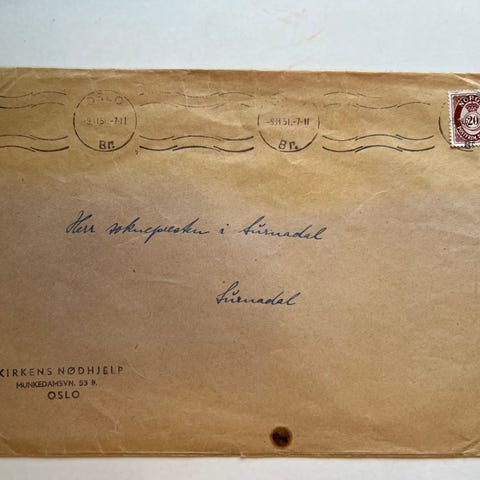 OSLO
-9.11.51.-7-11
Br.
-9.11.51.-7-11
Br.
NORGE
20
Br.
Herr soknepresten i Surnadal
Surnadal
KIRKENS NØDHJELP
MUNKEDAMSVN. 53 B.
OSLO